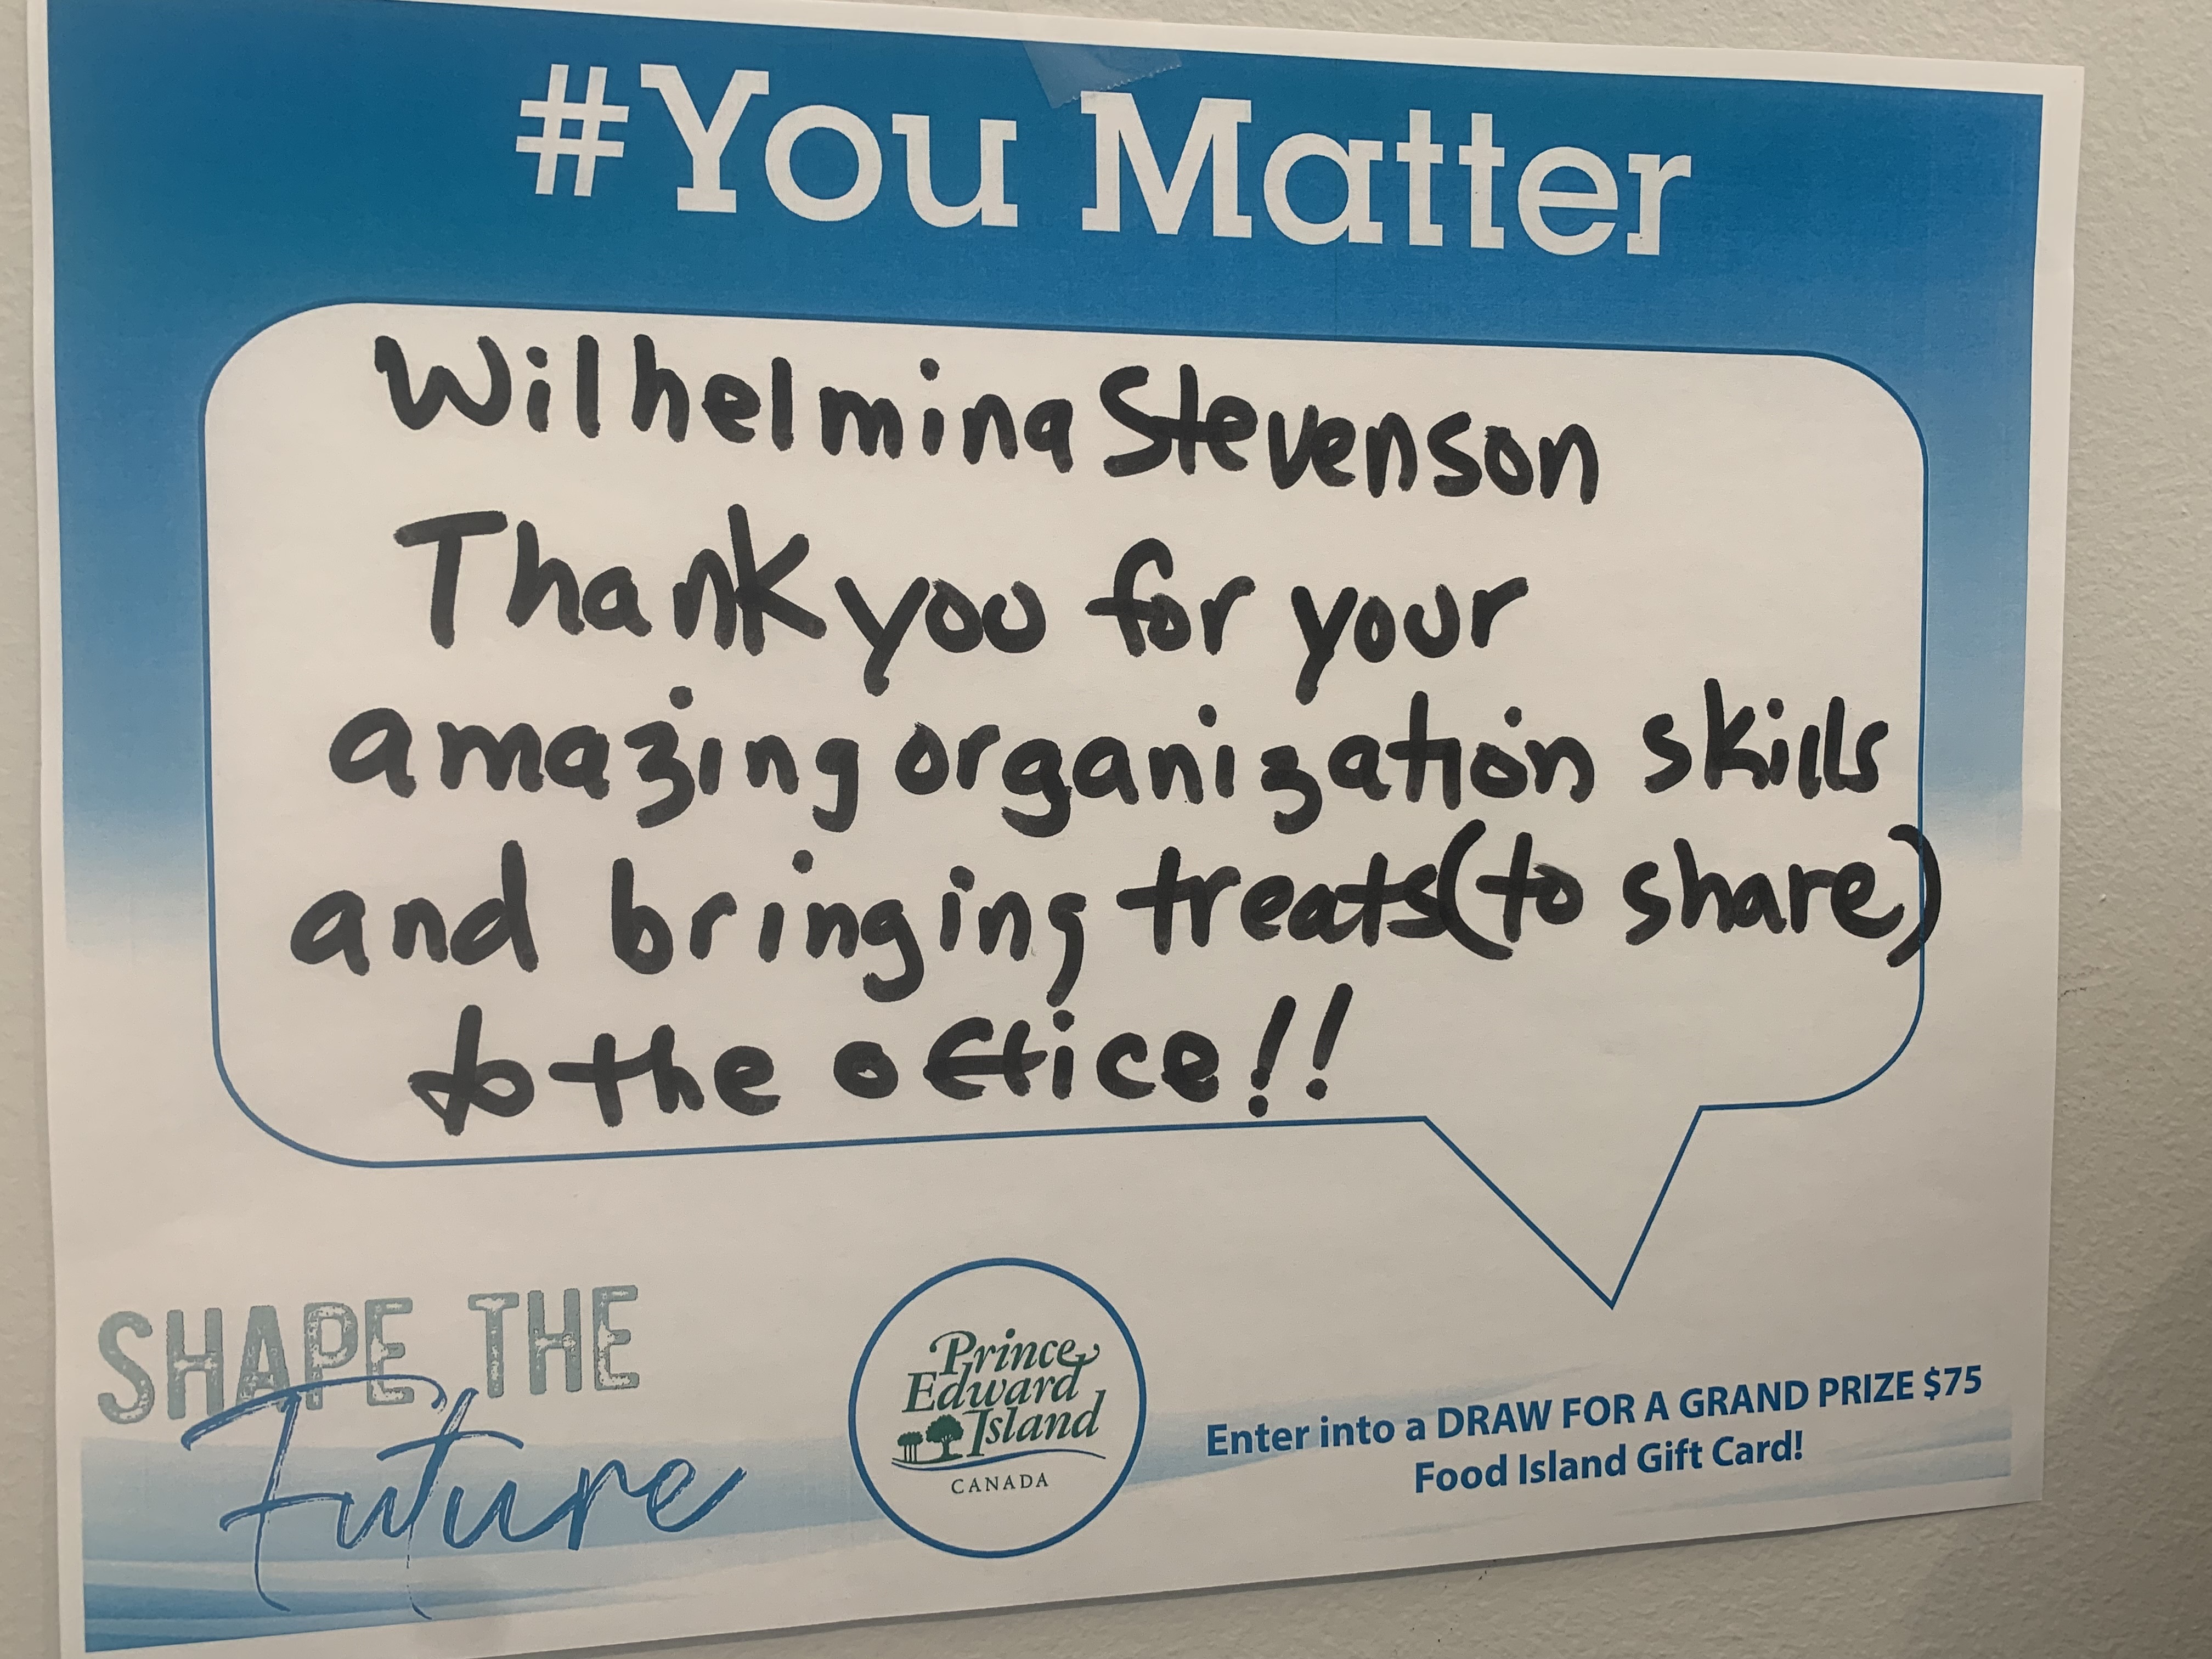 #You Matter
Wilhelmina Stevenson
Thank you for your
amazing organization skills
and bringing treats (to share)
to the office!!
SHAPE THE
Future
Prince
Edward
Island
CANADA
Enter into a DRAW FOR A GRAND PRIZE $75
Food Island Gift Card!